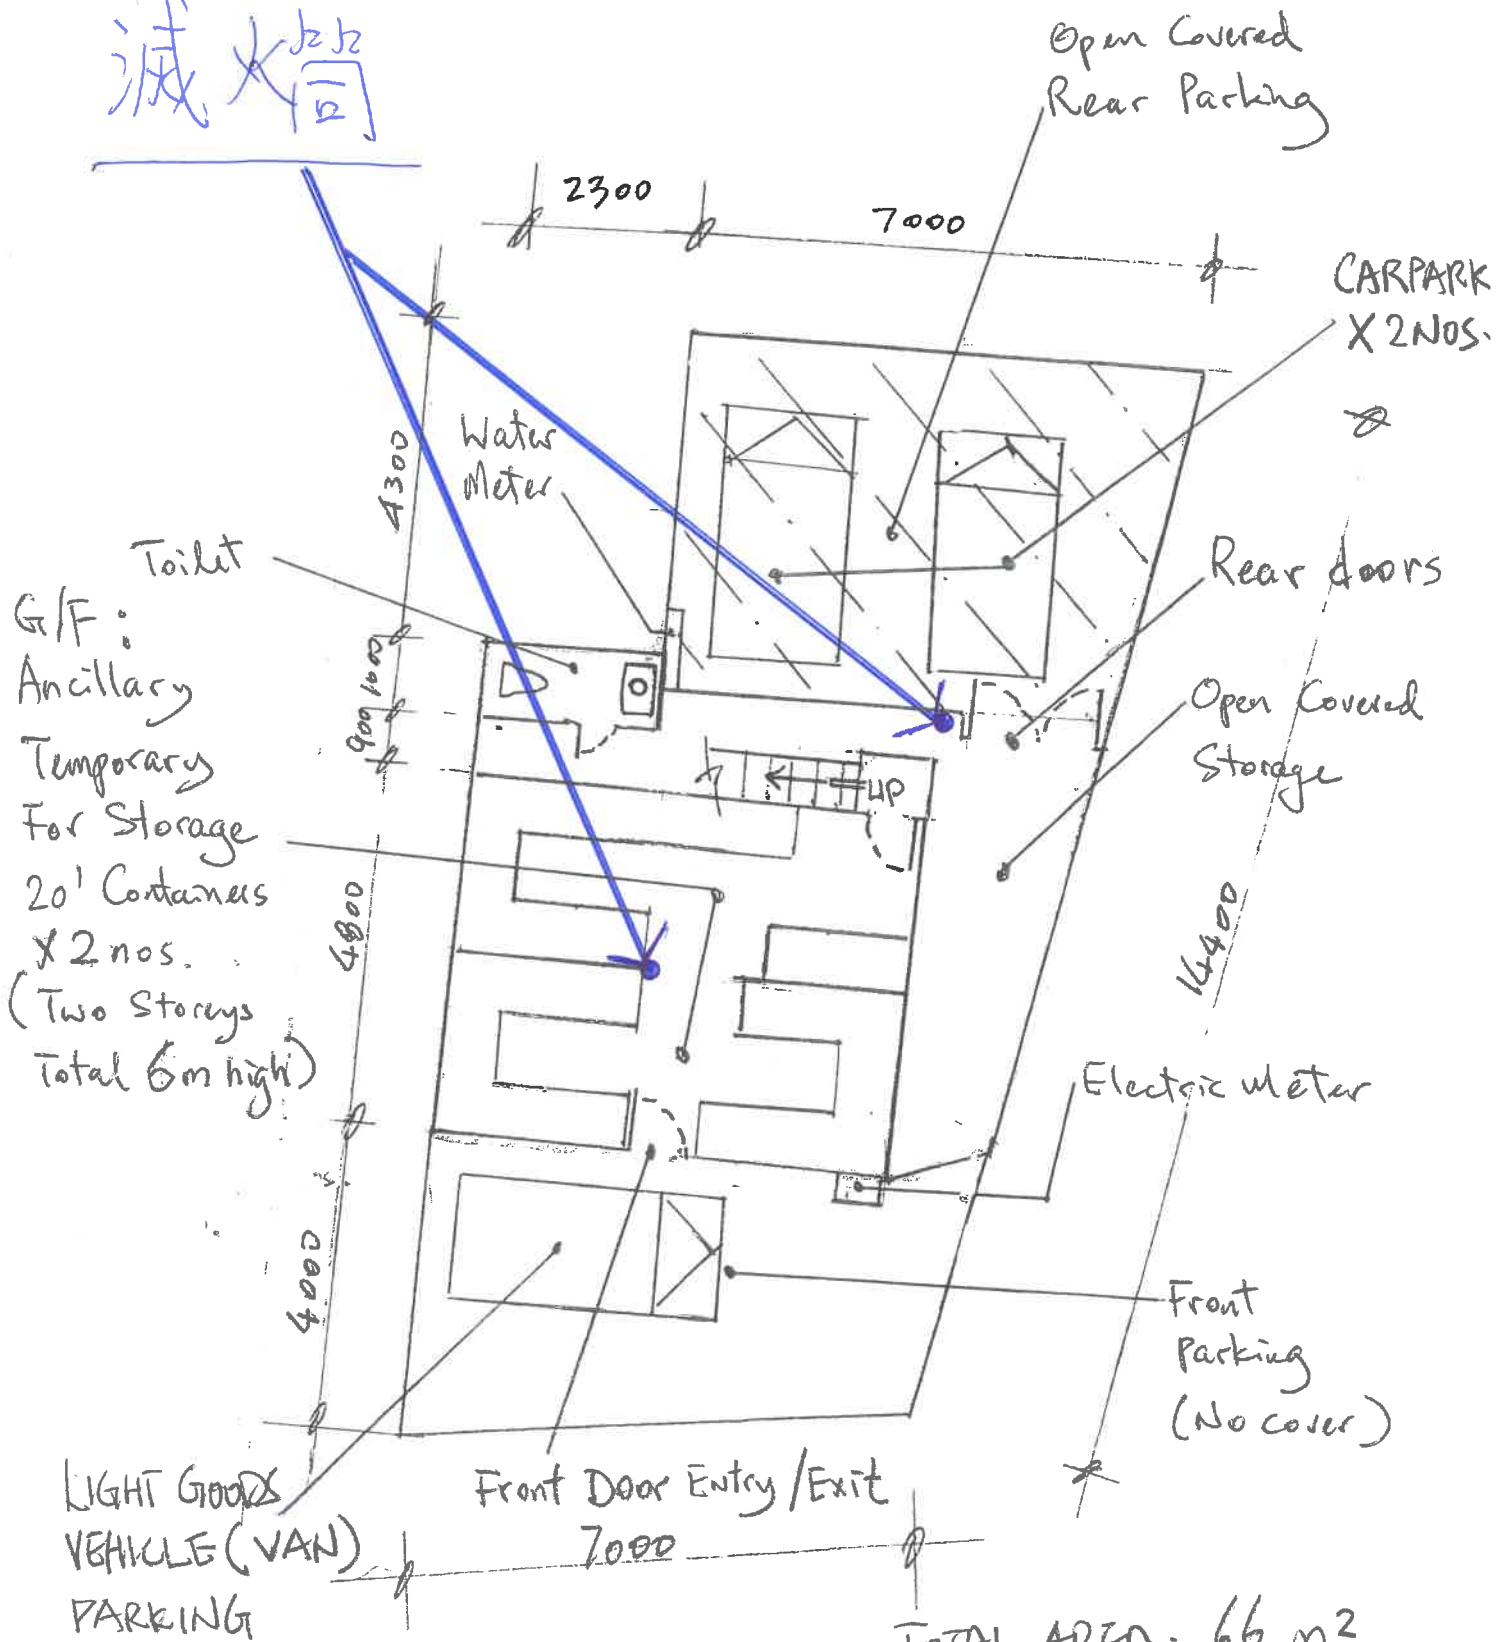 滅火筒
Open Covered
Rear Parking
2300
7000
CARPARK
X 2 NOS.
Water
Meter
4300
Toilet
Rear doors
G/F:
Ancillary
Temporary
For Storage
20' Containers
X 2 nos.
(Two Storeys
Total 6m high)
1000
900
Open Covered
Storage
UP
4800
14400
Electric Meter
4000
Front
Parking
(No cover)
LIGHT GOODS
VEHICLE (VAN)
PARKING
Front Door Entry/Exit
7000
TOTAL AREA: 66 m2